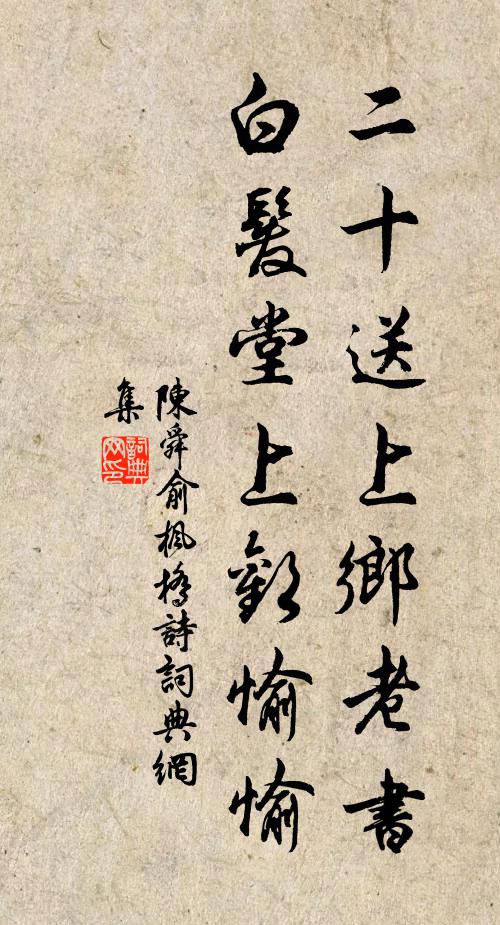 二十送上鄉老書
白髮堂上歡愉愉
陳舜俞楓橋詩詞典網
集
詞典
网印